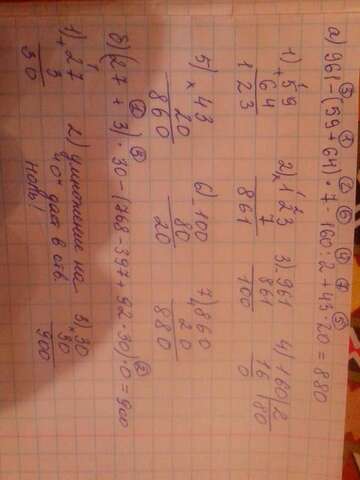 а) 961-(59+64)·7-160:2+43·20=880
1) 59
+ 64
123
2) 123
× 7
861
3) 961
- 861
100
4) 160|2
16 |80
0
5) 43
× 20
860
6) 100
- 80
20
7) 860
+ 20
880
б) (27+3)·30-(768-397+92·30)·0=900
1) 27
+ 3
30
2) умножение на
"0" дает в отв.
ноль!
3) 30
× 30
900